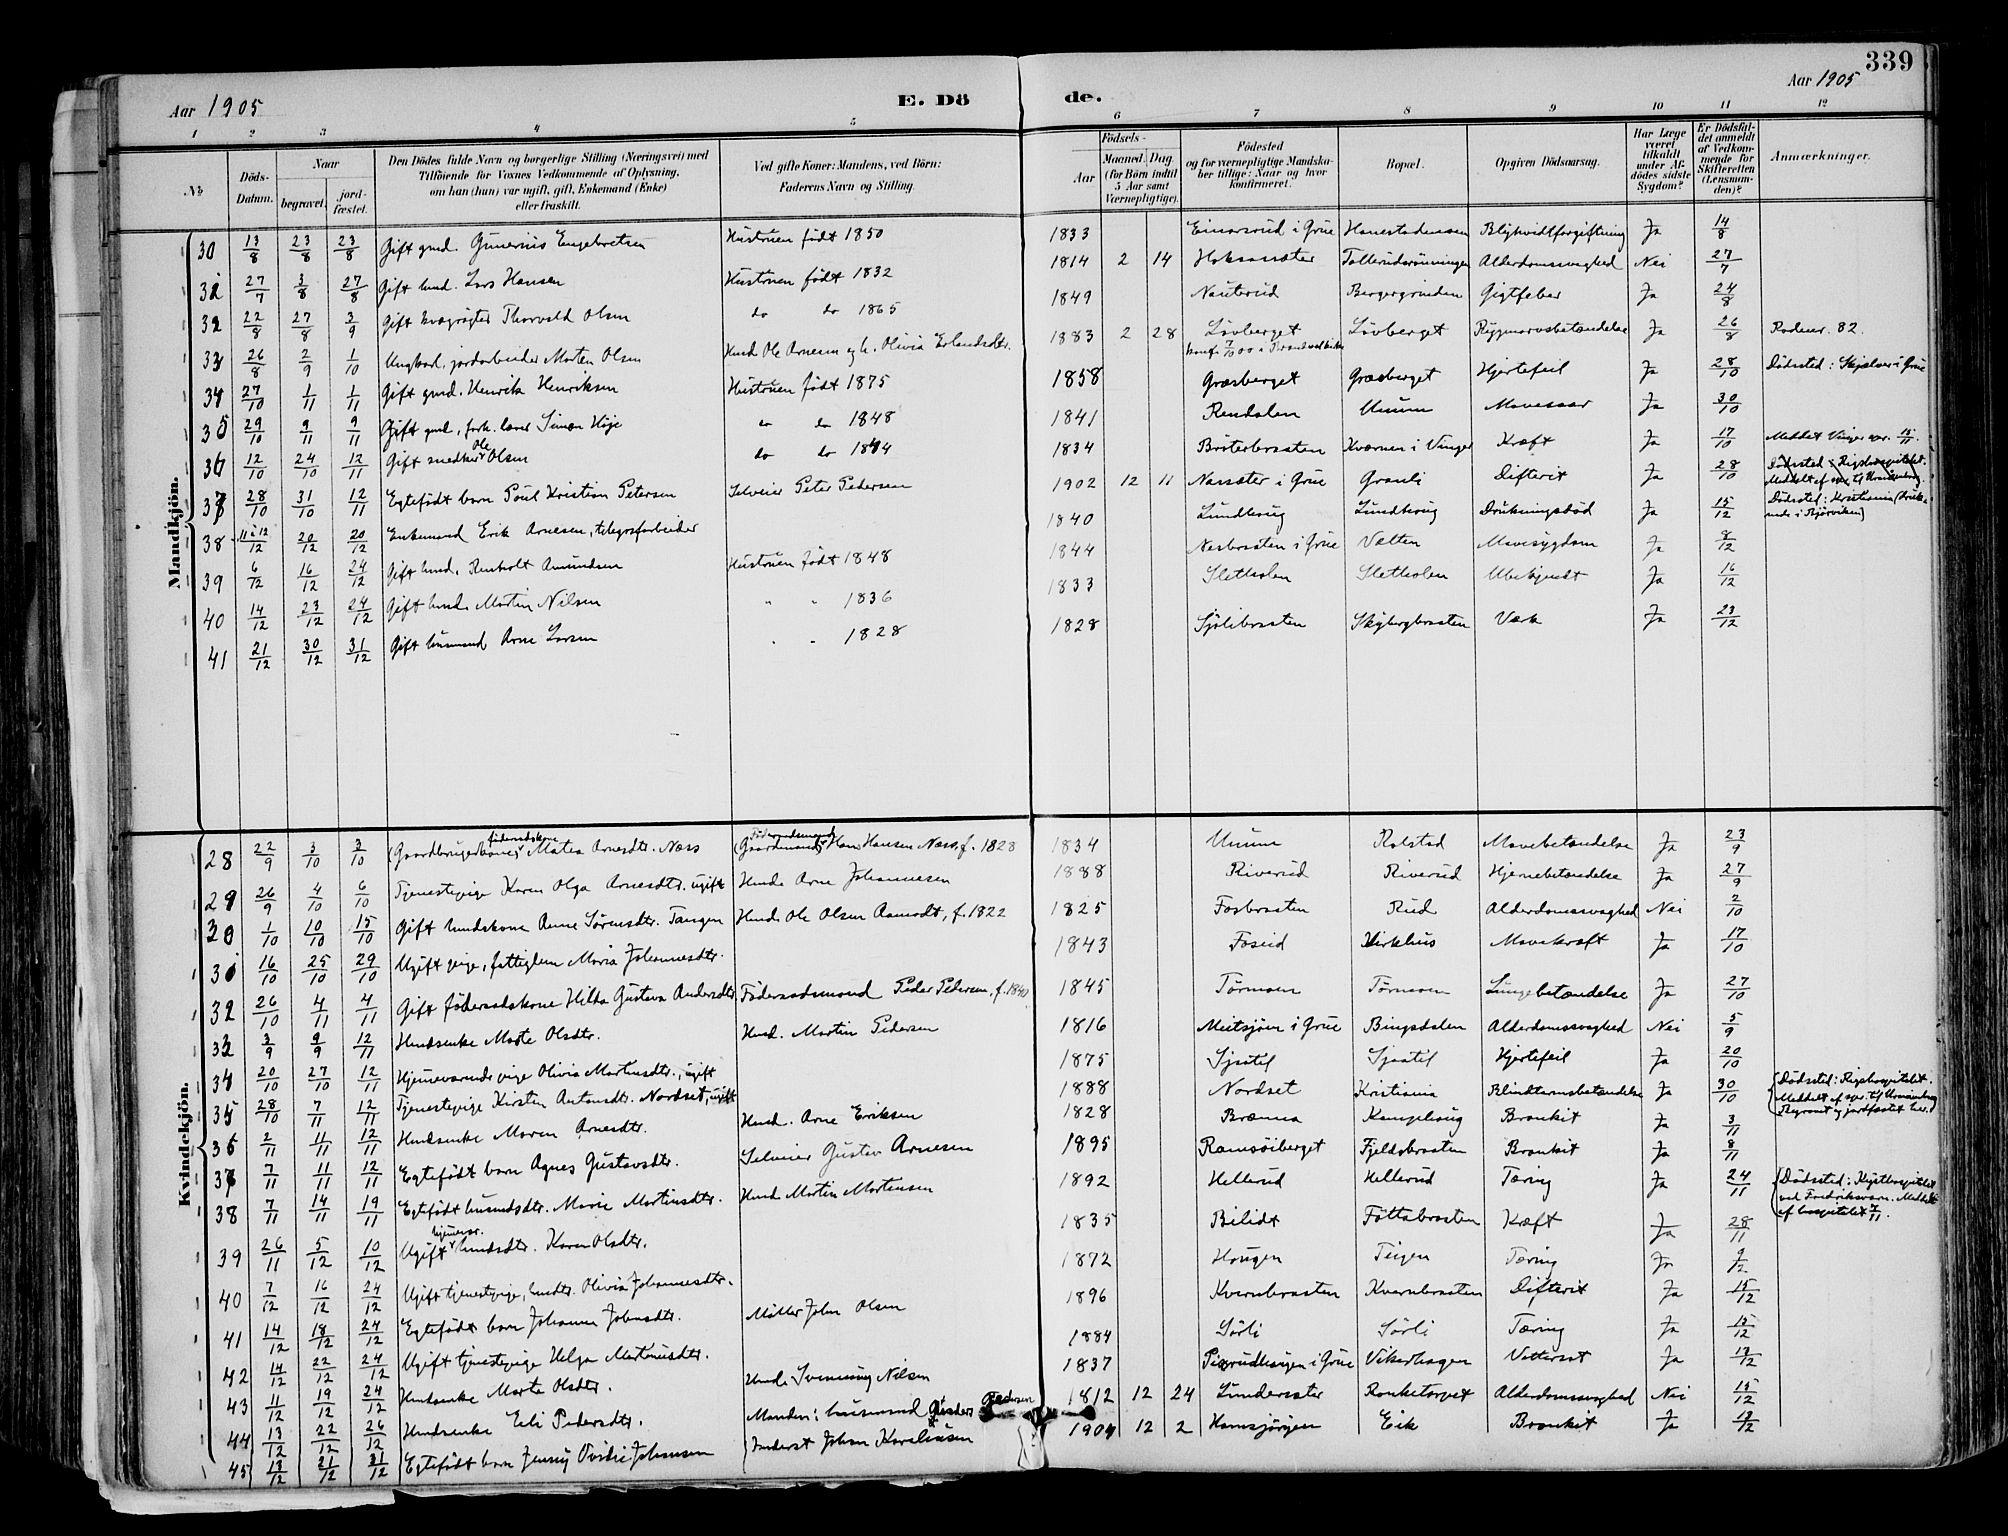 339
Aar 1905 E. Dö de. Aar 1905
1 2 3 4 5 6 7 8 9 10 11 12
No Döds-Datum. Naar begravet. jordfæstet. Den Dödes fulde Navn og borgerlige Stilling (Næringsvei) med Tilföiende for Voxnes Vedkommende af Oplysning, om han (hun) var ugift, gift, Enkemand (Enke) eller fraskilt. Ved gifte Koner: Mandens, ved Börn: Faderens Navn og Stilling. Födsels- Aar Maaned. Dag. (for Börn indtil 5 Aar samt Værnepligtige). Födested og for værnepligtige Mandskaber tillige: Naar og hvor konfirmeret. Bopæl. Opgiven Dödsaarsag. Har Læge været tilkaldt under Afdödes sidste Sygdom? Er Dödsfaldet anmeldt af Vedkommende for Skifteretten (Lensmanden)? Anmærkninger.
Mandkjön.
30 13/8 23/8 23/8 Gift gmd. Gunerius Engebretsen Hustruen født 1850 1833 Einarsrud i Grue Hanestadmoen Blyhvidtforgiftning Ja 14/8
31 27/7 3/8 27/8 Gift hmd. Lars Hansen Hustruen født 1832 1814 2 14 Hoksasæter Tollerudsrønningen Alderdomssvaghed Nei 27/7
32 22/8 27/8 3/9 Gift kvægrøgter Thorvald Olsen do do 1865 1849 Nauterud Bergergrinden Gigtfeber Ja 24/8
33 26/8 2/9 1/10 Ungkarl, jordarbeider Morten Olsen Hmd Ole Arnesen og h. Olivia Erlandsdtr. 1883 2 28 Løvberget Løvberget Rygmarvsbetændelse Ja 26/8 Rodenr. 82.
konf. 7/10 00 i Brandval kirke
34 27/10 1/11 1/11 Gift gmd. Henrik Henriksen Hustruen født 1875 1858 Græsberget Græsberget Hjertefeil Ja 28/10 Dødssted: Skjælver i Grue
35 29/10 9/11 9/11 Gift gmd, forh. lærer Simon Høje do do 1848 1841 Rendalen Unum Mavesaar Ja 30/10
36 12/10 24/10 12/11 Gift snedker Ole Olsen do do 1844 1834 Bråterbraaten Kværnen i Vinger Kræft Ja 17/10 Meddelt Vinger spr. 15/11.
37 28/10 31/10 12/11 Egtefødt barn Poul Kristian Petersen Selveier Peter Pedersen 1902 12 11 Næssæter i Grue Granli Difterit Ja 28/10
38 11 à 12/12 20/12 20/12 Enkemand Erik Arnesen, telegrafarbeider 1840 Lundhaug Lundhaug Drukningsdød Ja 15/12 Dødssted: Kristiania (druknede i Bjørviken)
39 6/12 16/12 24/12 Gift hmd. Renholt Amundsen Hustruen født 1848 1844 Næsbraaten i Grue Vælten Mavesygdom Ja 8/12
40 14/12 23/12 24/12 Gift hmd. Martin Nilsen " " 1836 1833 Sletholen Sletholen Ubekjendt Ja 16/12
41 21/12 30/12 31/12 Gift husmand Arne Larsen " " 1828 1828 Sjølibraaten Skybergbraaten Værk Ja 23/12
Kvindekjön.
28 22/9 3/10 3/10 (Gaardbrugerkone) føderaadskone Matea Arnesdtr. Næss (Gaardmand) Føderaadsmand Hans Hansen Næss, f. 1828 1834 Unum Rolstad Mavebetændelse Ja 23/9
29 26/9 4/10 6/10 Tjenestepige Karen Olga Arnesdtr. ugift Hmd. Arne Johannesen 1888 Riverud Riverud Hjernebetændelse Ja 27/9
30 1/10 10/10 15/10 Gift hmdskone Anne Sørensdtr. Tangen Hmd. Ole Olsen Aamodt, f. 1822 1825 Fosbraaten Rud Alderdomssvaghed Nei 2/10
31 16/10 25/10 29/10 Ugift pige, fattiglem Maria Johannesdtr. 1843 Foseid Kirkhus Mavekræft Ja 17/10
32 26/10 4/11 4/11 Gift føderaadskone Hilda Gustava Andersdtr. Føderaadsmand Peder Pedersen, f. 1840 1845 Tørmoen Tørmoen Lungebetændelse Ja 27/10
33 3/9 9/9 12/11 Hmdsenke Marte Olsdtr. Hmd. Martin Pedersen 1816 Meitsjøen i Grue Bingsdalen Alderdomssvaghed Nei 5/9
34 20/10 27/10 12/11 Hjemeværende pige Olivia Martinsdtr., ugift 1875 Sjøstil Sjøstil Hjertefeil Ja 20/10
35 28/10 7/11 12/11 Tjenestepige Kirsten Antonsdtr. Nordset, ugift 1888 Nordset Kristiania Blindtarmsbetændelse Ja 30/10 Dødssted: Rigshospitalet.
Begravet og jordfæstet her.
36 2/11 11/11 12/11 Hmdsenke Maren Arnesdtr. Hmd. Arne Eriksen 1828 Brænna Kampehaug Bronkit Ja 3/11
37 7/11 11/11 12/11 Egtefødt barn Agnes Gustavsdtr. Selveier Gustav Arnesen 1895 Ramsøiberget Fjeldsbraaten Bronkit Ja 8/11
38 7/11 14/11 19/11 Egtefødt husmdsdtr. Marie Martinsdtr. Hmd. Martin Mortensen 1892 Hellerud Hellerud Tæring Ja 24/11 Dødssted: Kysthospitalet ved Fredriksværn. Meddelt af hospitalet 7/11.
39 26/11 5/12 10/12 Ugift hjemmev. hmdsdtr. Karen Olsdtr. 1835 Bilidt Føttabraaten Kræft Ja 28/11
40 7/12 16/12 24/12 Ugift tjenestepige, hmdsdtr. Olivia Johannesdtr. 1872 Haugen Teigen Tæring Ja 9/12
41 14/12 18/12 24/12 Egtefødt barn Johanna Johnsdtr. Møller John Olsen 1896 Kvernbraaten Kvernbraaten Difterit Ja 15/12
42 14/12 22/12 24/12 Ugift tjenestepige Helga Martinusdtr. 1884 Sørli Sørli Tæring Ja 15/12
43 11/12 19/12 24/12 Hmdsenke Marte Olsdtr. Hmd. Svenning Nilsen 1837 i Grue Vikerhagen Vattersot Ja 12/12
44 13/12 22/12 26/12 Hmdsenke Eli Pedersdtr. Manden: husmand Peder Pedersen 1812 12 24 Lundersæter Ronketorpet Alderdomssvaghed Nei 15/12
45 13/12 21/12 31/12 Egtefødt barn Jenny Ovidie Johansen Inderst Johan Karelius­sen 1904 12 2 Hamsjørgen Eik Bronkit Ja 17/12